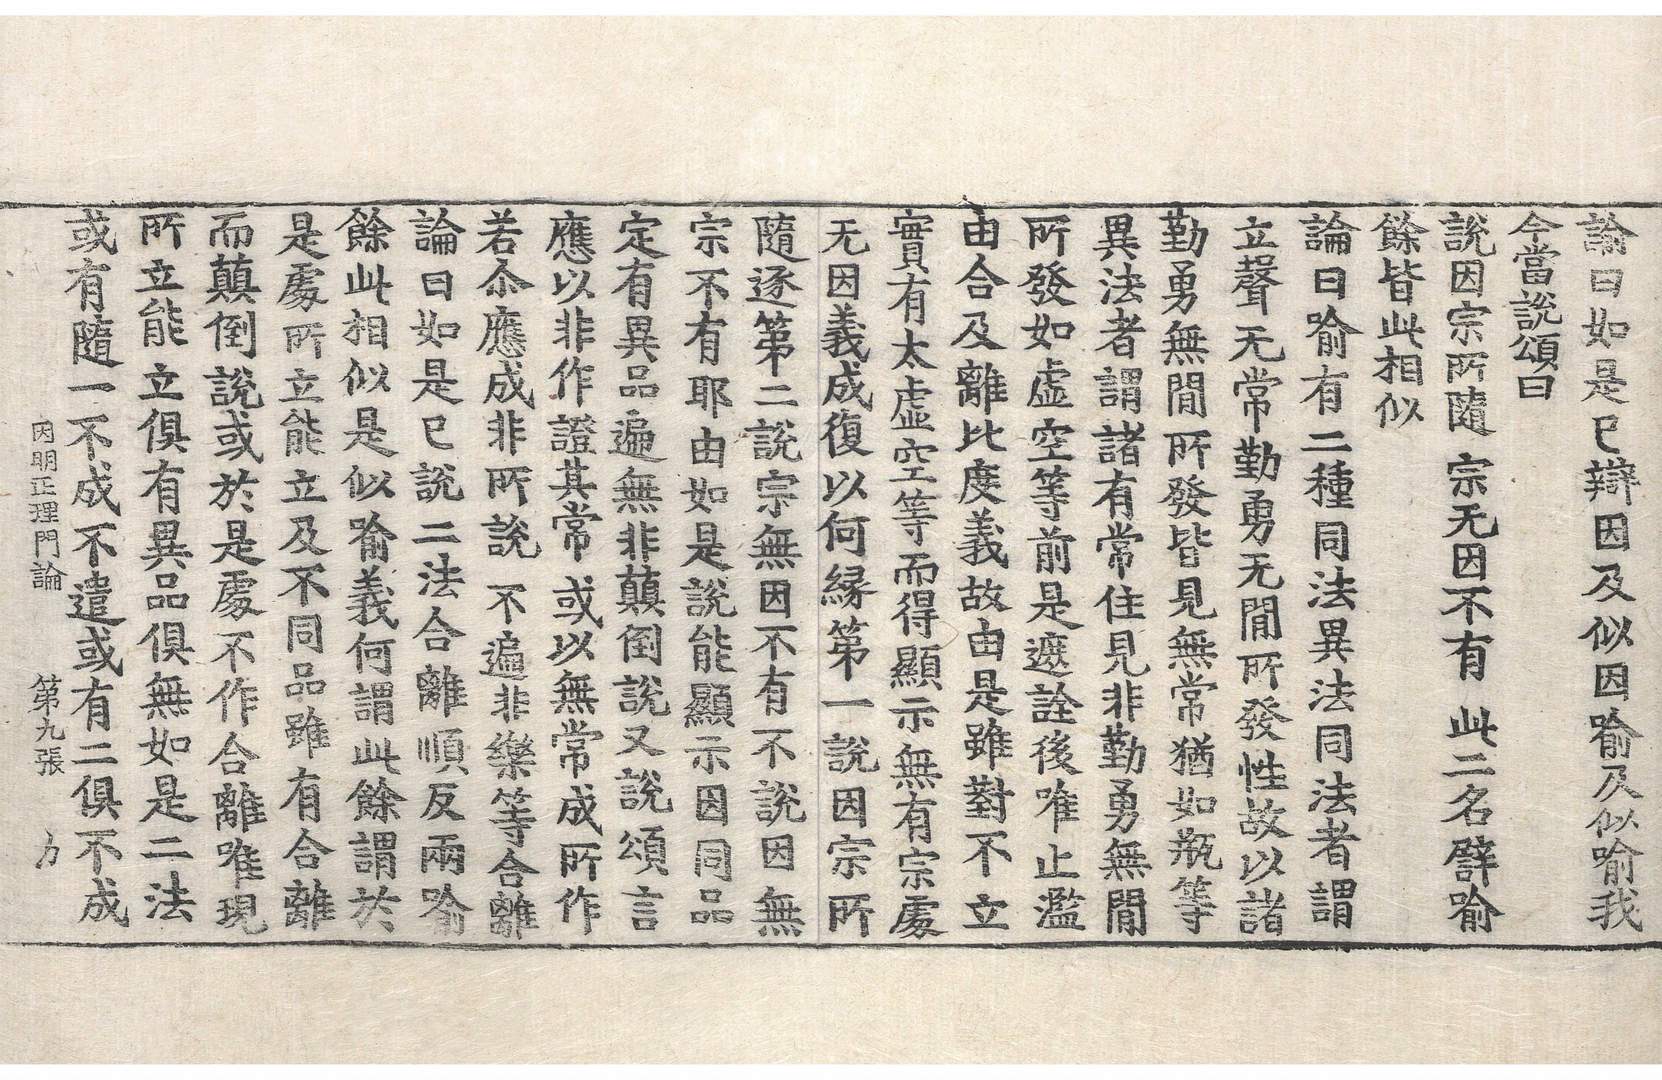 論曰如是已辯因及似因喻及似喻我
今當說頌曰
說因宗所隨　宗无因不有　此二名譬喻
餘皆此相似
論曰喻有二種同法異法同法者謂
立聲无常勤勇无閒所發性故以諸
勤勇無閒所發皆見無常猶如瓶等
異法者謂諸有常住見非勤勇無閒
所發如虛空等前是遮詮後唯止濫
由合及離比度義故由是雖對不立
實有太虛空等而得顯示無有宗處
无因義成復以何緣第一說因宗所
隨逐第二說宗無因不有不說因無
宗不有耶由如是說能顯示因同品
定有異品遍無非顛倒說又說頌言
應以非作證其常　或以無常成所作
若尒應成非所說　不遍非樂等合離
論曰如是已說二法合離順反兩喻
餘此相似是似喻義何謂此餘謂於
是處所立能立及不同品雖有合離
而顛倒說或於是處不作合離唯現
所立能立俱有異品俱無如是二法
或有隨一不成不遣或有二俱不成
因明正理門論　第九張　力